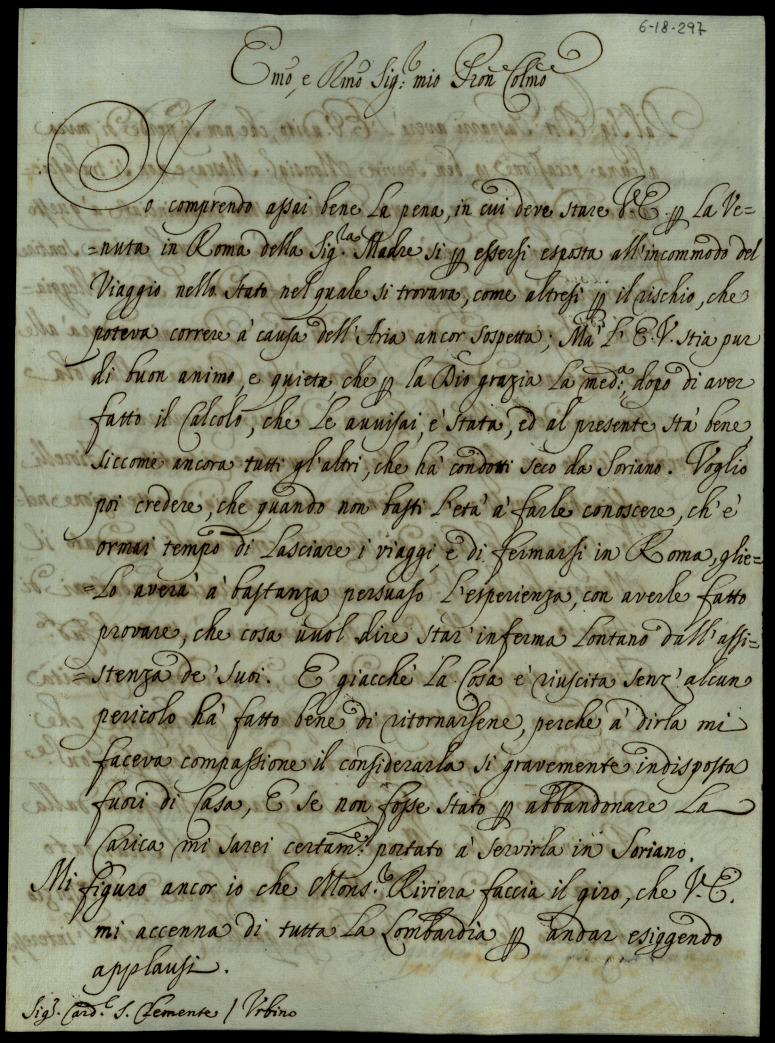 6-18-297
Emo, e Rmo Sig.r mio Pron Colmo
Io comprendo assai bene la pena, in cui deve stare V.E. p la Ve=
=nuta in Roma della Sig.ra Madre si p essersi esposta all'incommodo del
Viaggio nello stato nel quale si trovava, come altresi p il rischio, che
poteva correre à causa dell'Aria ancor sospetta; Mà l'E.V. stia pur
di buon animo, e quieta, che p la Dio grazia la med.a, dopo di aver
fatto il Calcolo, che le auuisai, è stata, ed al presente stà bene,
siccome ancora tutti gl'altri, che hà condotti seco da Soriano. Voglio
poi credere, che quando non basti l'età à farle conoscere, ch'è
ormai tempo di lasciare i viaggi, e di fermarsi in Roma, glie=
=lo averà à bastanza persuaso l'esperienza, con averle fatto
provare, che cosa uuol dire star'inferma lontano dall'assi=
=stenza de' suoi. E giacchè la Cosa è riuscita senz'alcun
pericolo hà fatto bene di ritornarsene, perche à dirla mi
faceva compassione il considerarla si gravemente indisposta
fuori di Casa, E se non fosse stato p abbandonare la
Carica mi sarei certam.e portato à servirla in Soriano.
Mi figuro ancor io che Mons.r Riviera faccia il giro, che V.E.
mi accenna di tutta la Lombardia p andar esiggendo
applausi.
Sig.r Card.l S. Clemente / Urbino